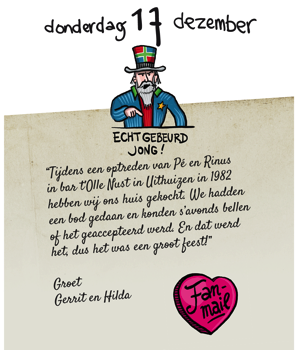 donderdag 17 dezember
ECHT GEBEURD
JONG!
“Tijdens een optreden van Pé en Rinus
in bar t’Olle Nust in Uithuizen in 1982
hebben wij ons huis gekocht. We hadden
een bod gedaan en konden s’avonds bellen
of het geaccepteerd werd. En dat werd
het, dus het was een groot feest!”
Groet
Gerrit en Hilda
Fan-
mail